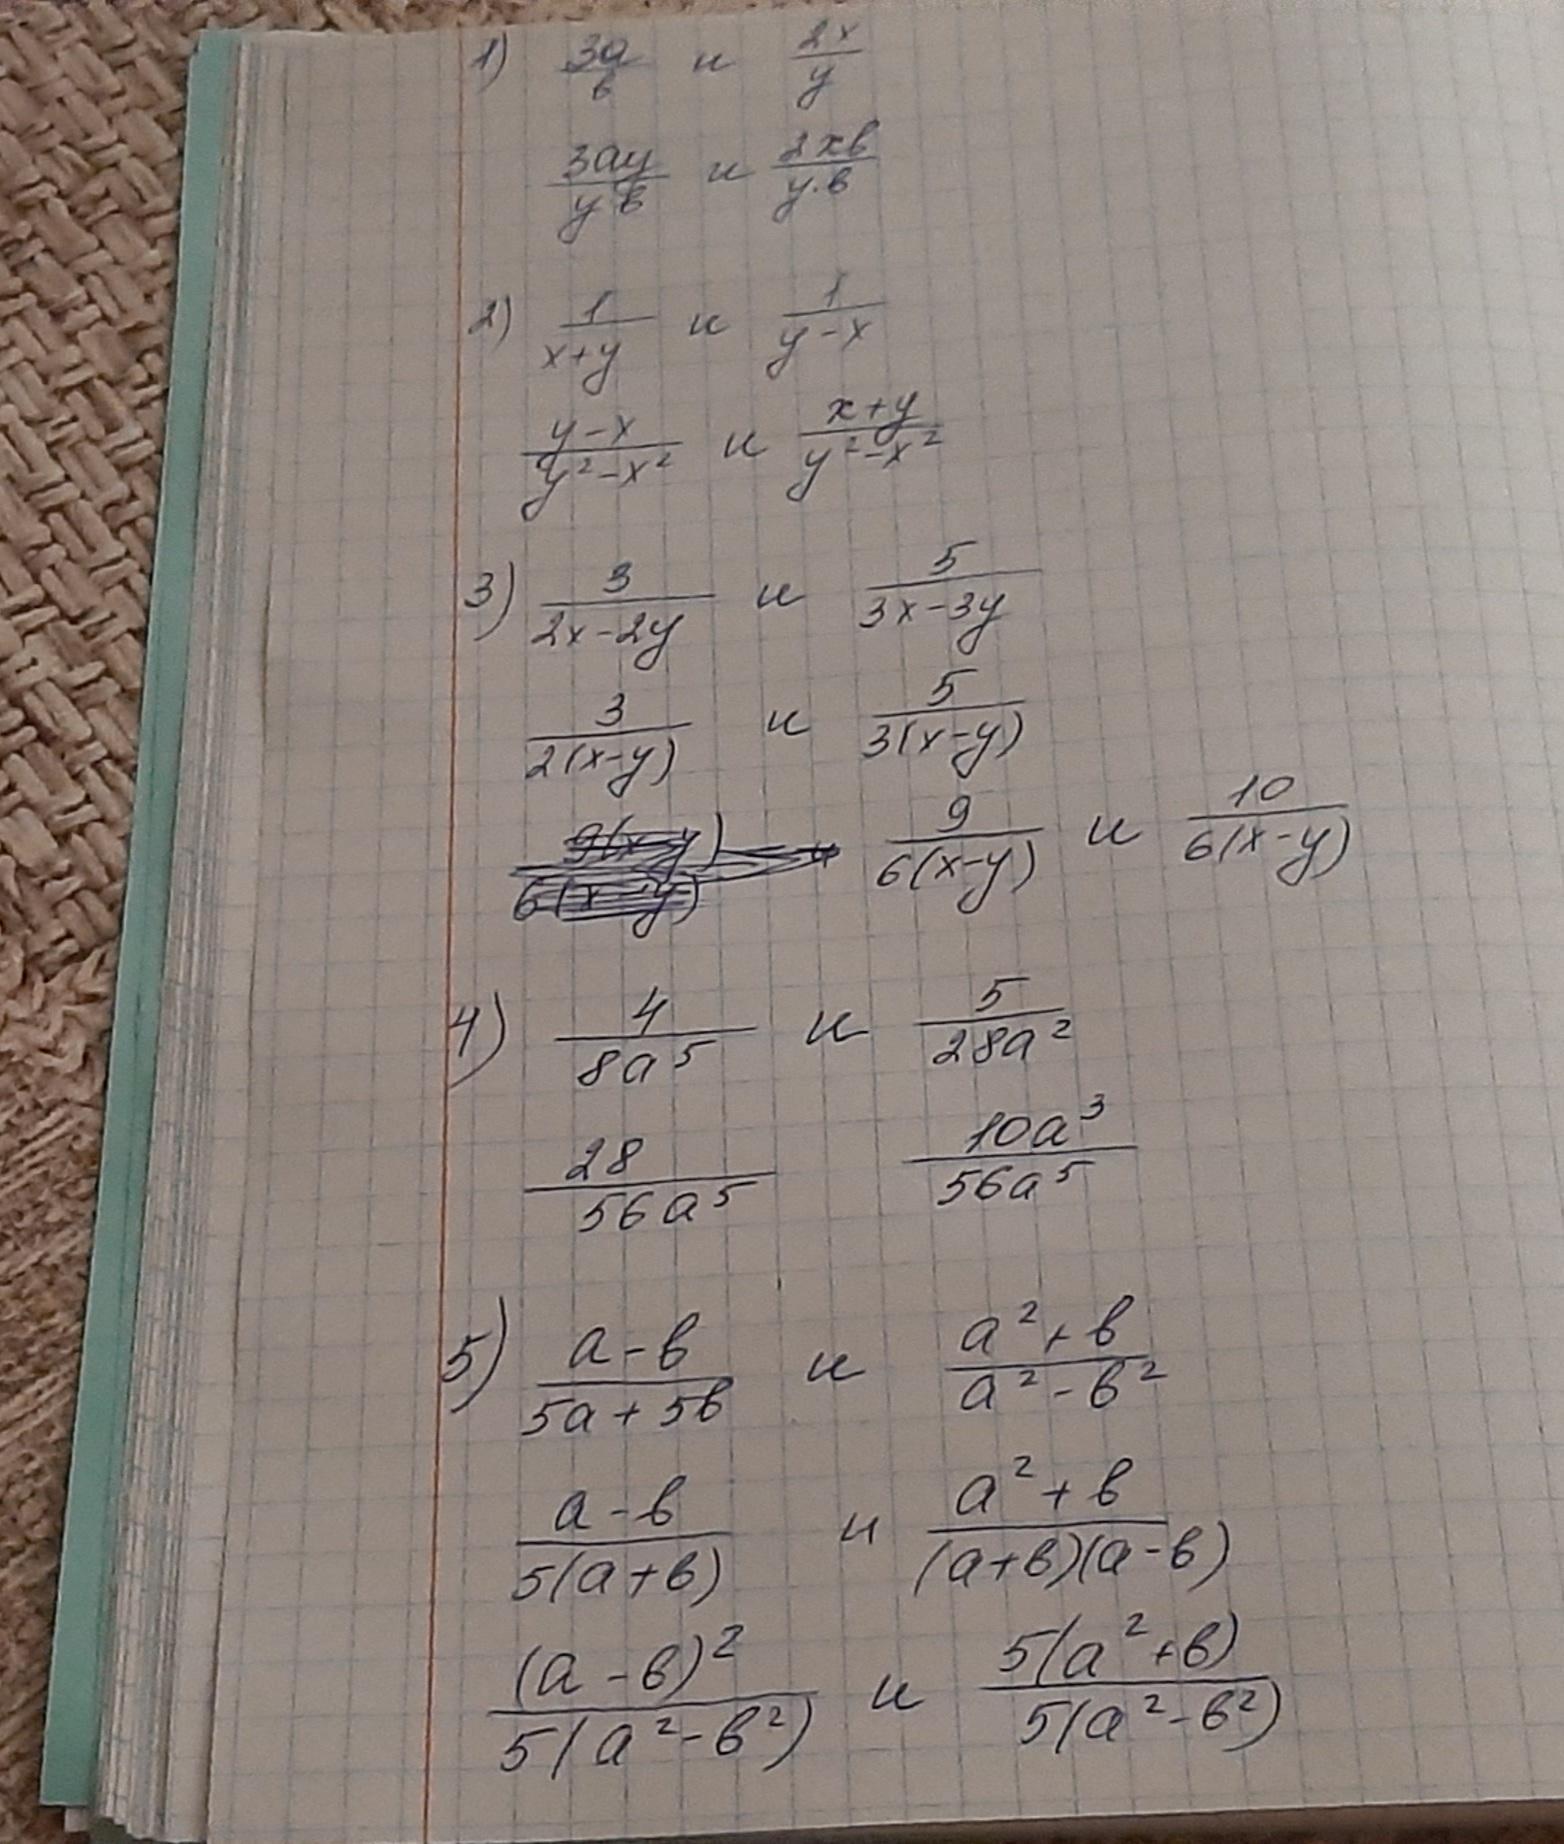 1) 3a/в и 2x/y
3ay/yв и 2xв/y·в
2) 1/(x+y) и 1/(y-x)
(y-x)/(y²-x²) и (x+y)/(y²-x²)
3) 3/(2x-2y) и 5/(3x-3y)
3/(2(x-y)) и 5/(3(x-y))
9/(6(x-y)) и 10/(6(x-y))
4) 4/(8a⁵) и 5/(28a²)
28/(56a⁵) 10a³/(56a⁵)
5) (a-в)/(5a+5в) и (a²+в)/(a²-в²)
(a-в)/(5(a+в)) и (a²+в)/((a+в)(a-в))
(a-в)²/(5(a²-в²)) и 5(a²+в)/(5(a²-в²))